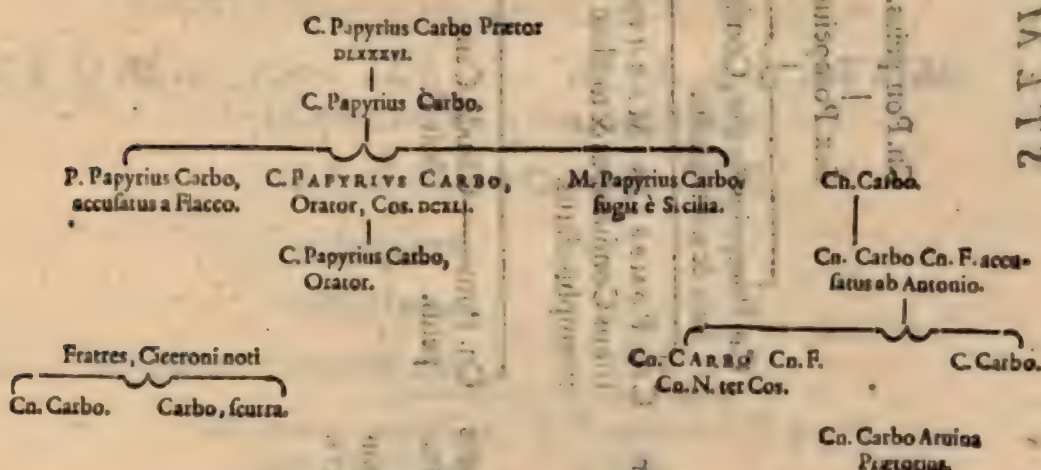 C. Papyrius Carbo Prætor
DLXXXVI.
C. Papyrius Carbo.
P. Papyrius Carbo,
accuſatus a Flacco.
C. PAPYRIVS CARBO,
Orator, Cos. DCXLI.
M. Papyrius Carbo,
fugit è Sicilia.
Cn. Carbo.
C. Papyrius Carbo,
Orator.
Cn. Carbo Cn. F. accu-
ſatus ab Antonio.
Fratres, Ciceroni noti
Cn. Carbo.
Carbo, ſcurra.
Cn. CARBO Cn. F.
Cn. N. ter Cos.
C. Carbo.
Cn. Carbo Aruina
Prætorius.